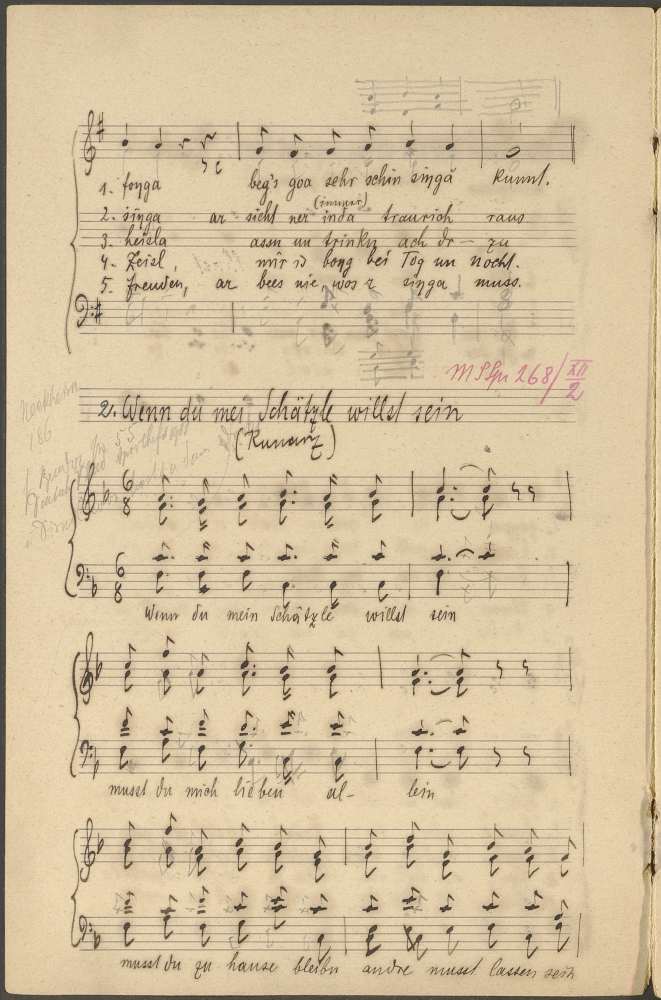 1. foyga beg's goa sehr schin singa kunnt.
(immer)
2. singa ar sicht ner inda traurich raus
3. heisla assn un trinkn ach dr - zu
4. Zeisl, mir is bong bei Tog un nocht.
5. freuden, ar bees nie, wos r singa muss.
MSSpr 268/XII 2
2. Wenn du mei Schätzle willst sein
6 8
6 8
Wenn du mein Schätzle willst sein
musst du mich lieben al- lein
musst du zu hause bleibn andre musst lassen sein